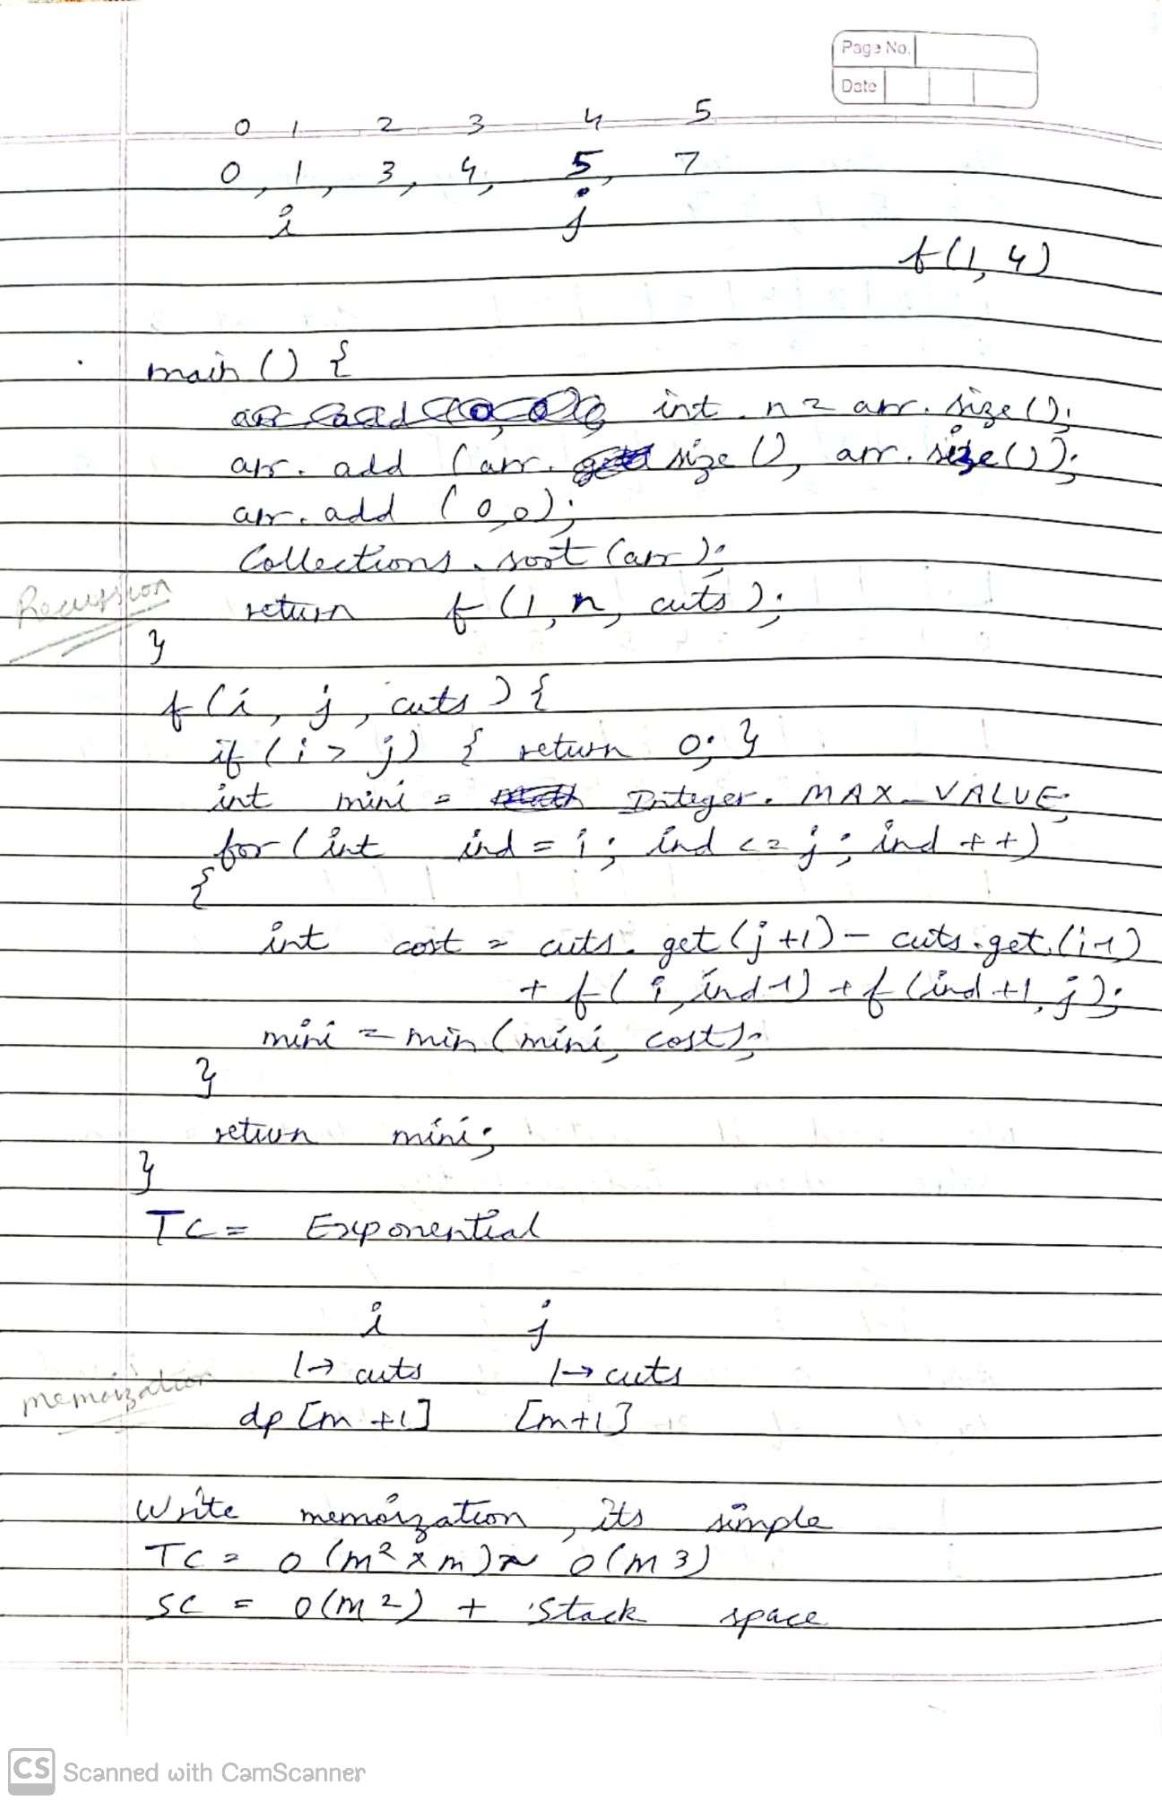 Page No.
Date
0 1 2 3 4 5
0, 1, 3, 4, 5, 7
i j
f(1, 4)
main () {
int n = arr. size();
arr. add (arr. size (), arr. size());
arr. add (0,0);
Collections. sort (arr);
Recursion
return f (1, n, cuts);
}
f (i, j, cuts) {
if (i > j) { return 0; }
int mini = Integer. MAX_VALUE;
for (int ind = i; ind <= j; ind ++)
{
int cost = cuts. get (j+1) - cuts. get (i-1)
+ f (i, ind-1) + f (ind+1, j);
mini = min (mini, cost);
}
return mini;
}
TC = Exponential
i j
1→ cuts 1→ cuts
memoization
dp [m+1] [m+1]
Write memoization, its simple
TC = O(m² x m) ≈ O(m3)
SC = O(m2) + stack space
CS Scanned with CamScanner